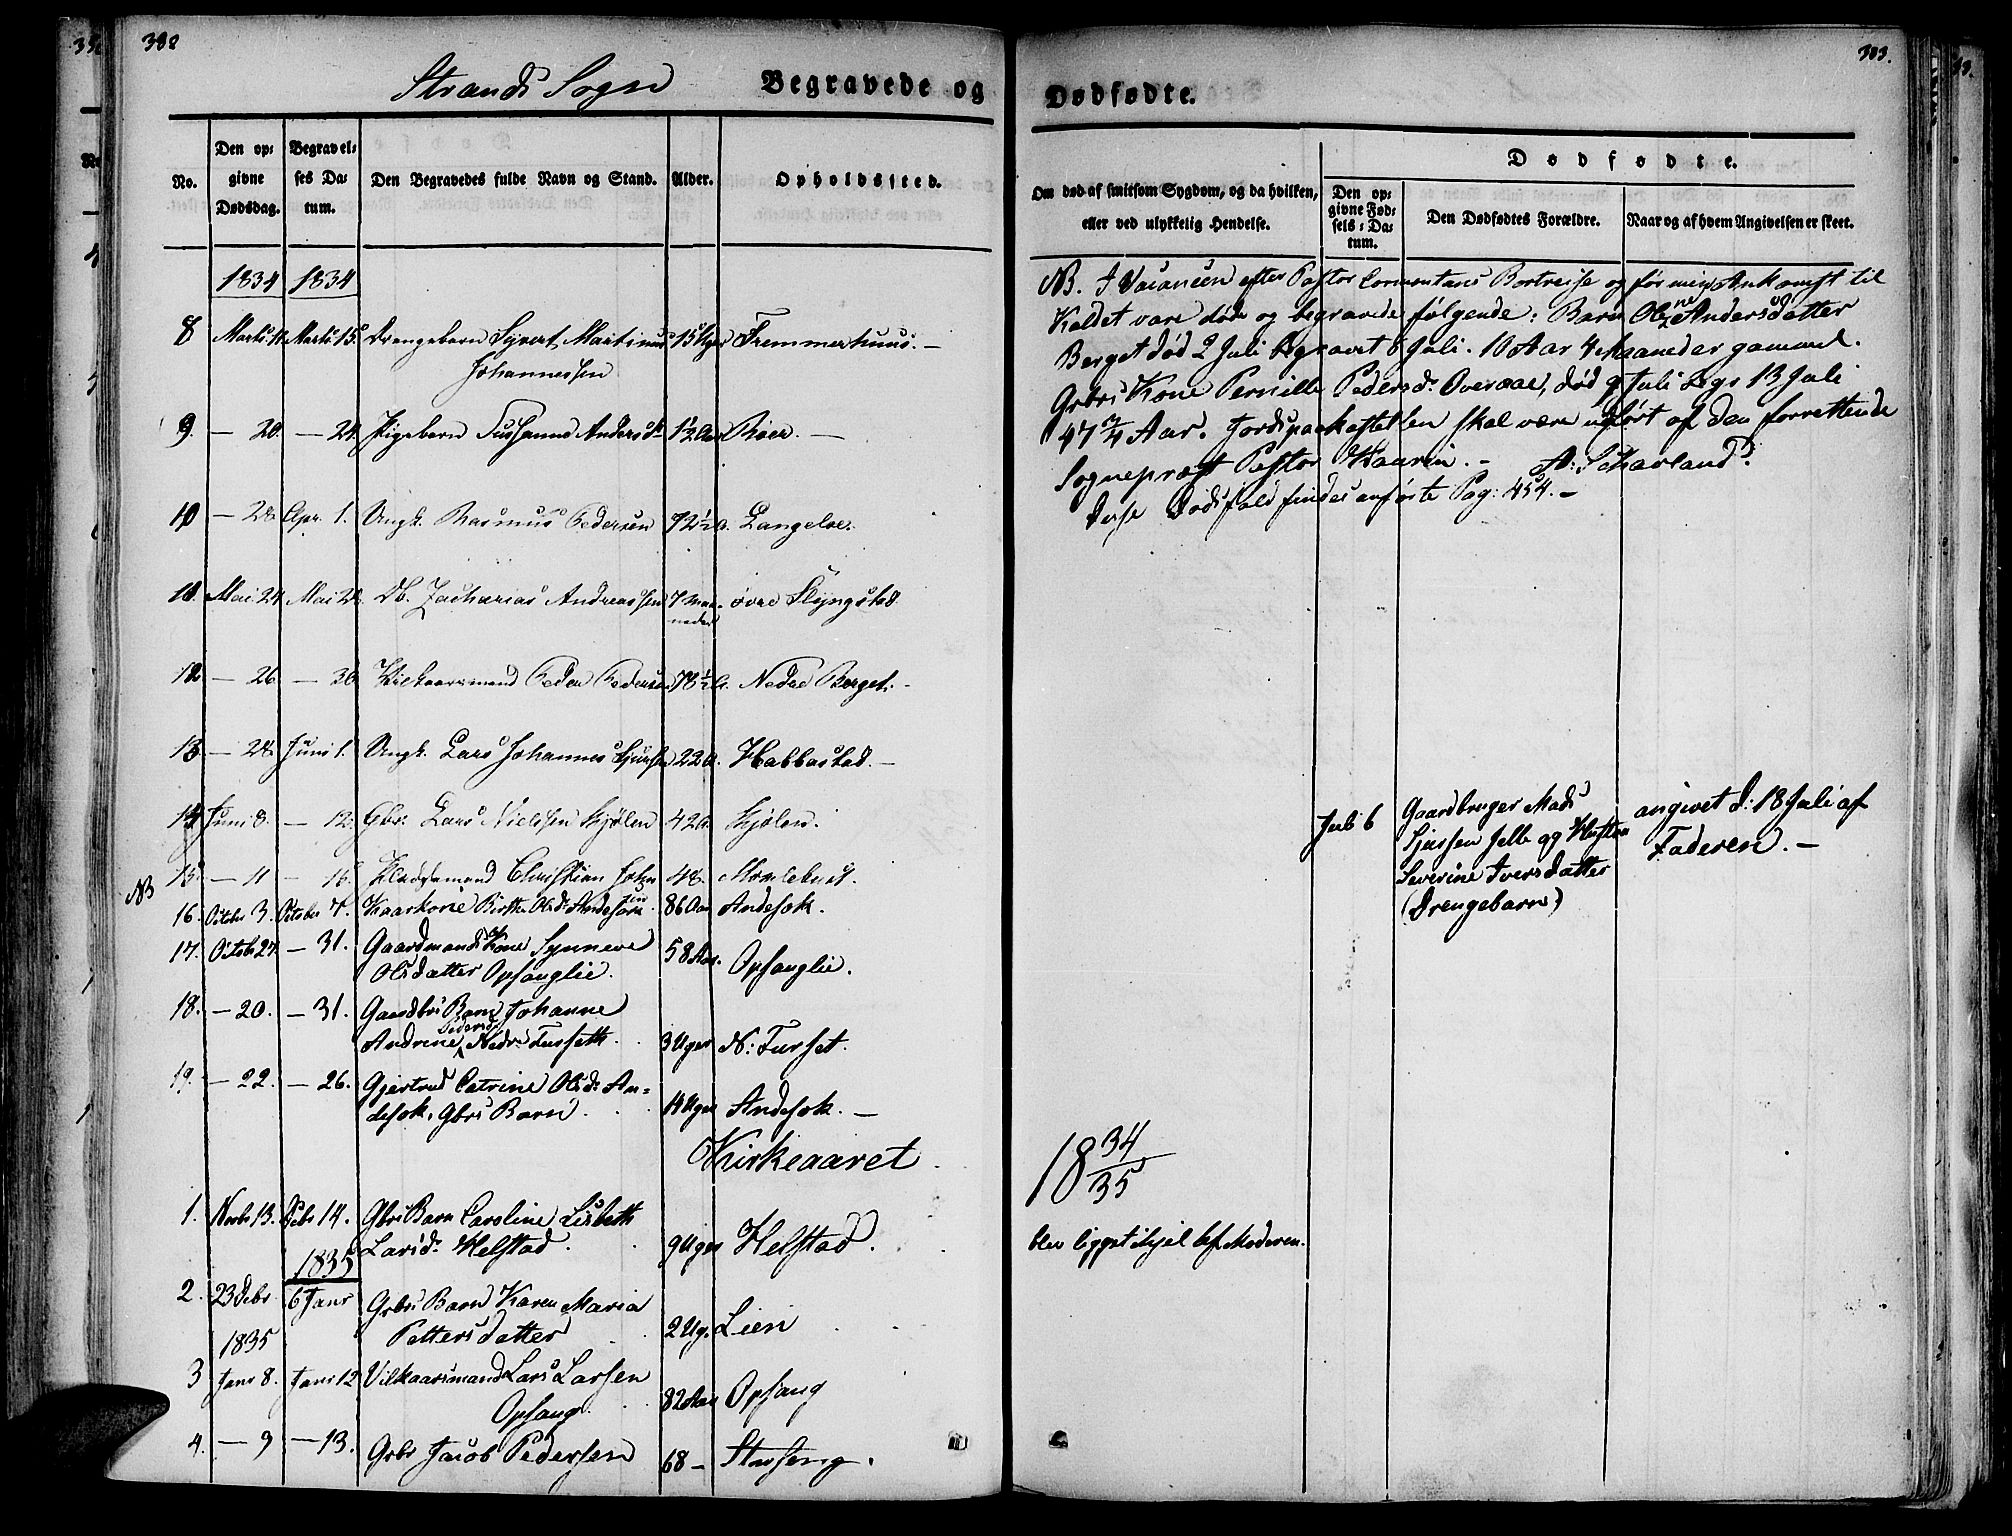 382
Strands Sogn Begravede og
No.
Den op-
givne
Dødsdag.
Begravel-
ses Da-
tum.
Den Begravedes fulde Navn og Stand.
Alder.
Opholdssted.
1834 1834
8 Marts 11. Marts 15. Drengebarn Syvert Martinus 15 Uger Fremmerhuus. —
Johannessen
9. — 20. — 24. Pigebarn Susanne Andersdr 1½ Aar Roer. —
10 — 28. Apr. 1. Ungk. Rasmus Pedersen 72½ A. Langeloe.
11. Mai 24. Mai 28. Db. Zacharias Andreassen 7 Maa- øvre Slyngstad.
neder
12 — 26. — 30. Vilkaarsmand Peder Pedersen 78½ A. Nedre Berget. —
13 — 28. Juni 1. Ungk. Lars Johannes Sjursen 22 A. Habbastad. —
14 Juni 8. — 12. Gbr. Lars Nielssen Kjølen 42 A. Kjølen.
15. — 11 — 16. Christian 48.
NB
16. October 3. October 7. Kaarkone Birthe Olsdr Andesøre 86 Aar Andesok.
17. Octob 27. — 31. Gaardmands Kone Synneve 58 Aar.
Olsdatter Opsanglie. Opsanglie.
18. — 20. — 31. Gaardbrs Barn Johanne
Pedersdr
Andrine Nedre Furseth. 3 Uger N: Furset.
19. — 22. — 26. Gjertrud Catrine Olsdr An-
desok, Gbrs Barn. 4 Uger Andesok. —
Kirkeaaret
1. Novbr 13. Debr 14. Gbrs Barn Caroline Lisbeth
Larsdr Helstad. 9 Uger Helstad.
1835
2. 23 Debr. 6 Janr Grbrs Barn Karen Maria
1835 Pettersdatter 2 Ug. Lien
3 Janr 8. Janr 12 Vilkaarsmand Lars Larsen
Opsang. 82 Aar Opsang
4. — 9 — 13. Grbr Jacob Pedersen 68 — Stavseng.
383.
Dødfødte.
Om død af smitsom Sygdom, og da hvilken,
eller ved ulykkelig Hendelse.
Dødfødte.
Den op-
givne Fød-
sels-Da-
tum.
Den Dødfødtes Forældre.
Naar og af hvem Angivelsen er skeet.
NB. I Vacancen efter Pastor Conventans Bortreise og før min Ankomst til
Kaldet vare døde og begravede følgende: Barn Oline Andersdatter
Berget død 2 Juli begravet 8 Juli. 10 Aar 4 Maaneder gammel.
Grbrs Kone Pernille Pedersdr. Overaae, død 9 Juli begr 13 Juli
47 ¾ Aar. Jordspaakastelsen skal være udført af den forrettende
Sognepræst Pastor Kaurin. — A: Scharland.
Disse Dødsfald findes anførte Pag: 454. —
Juli 6
Gaardbruger Mads
Sjursen Selle og Hustru
Severine Iversdatter
(Drengebarn)
angivet d: 18 Juli af
Faderen. —
18 34/35
blev ligget ihjel af Moderen.